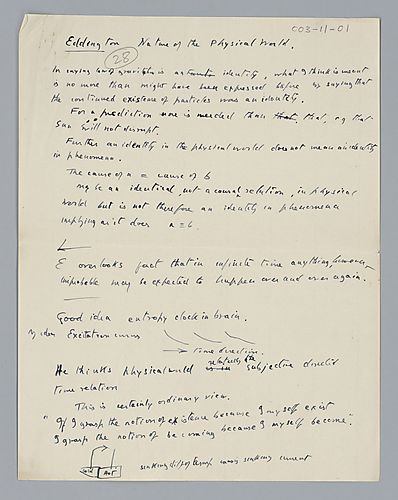 C03-11-01
Eddington Nature of the Physical World.
28
In saying law of gravitation is an identity, what I think is meant
is no more than might have been expressed before by saying that
the continued existence of particles was an identity.
For a prediction more is needed than that, e.g. that
Sun will not disrupt.
Further an identity in the physical world does not mean an identity
in phenomena.
The cause of a = cause of b
may be an identical, not a causal relation, in physical
world but is not therefore an identity in phenomena
implying as it does a = b.
E overlooks fact that in infinite time anything, however
improbable may be expected to happen over and over again.
Good idea entropy clock in brain.
My idea Excitation curves
→ time direction.
He thinks physical world subjective
time relation
This is certainly ordinary view.
"If I grasp the notion of existence because I myself exist
I grasp the notion of becoming because I myself become".
Cold Hot
sinking current